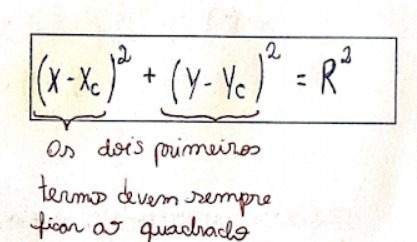 (X - Xc)² + (Y - Yc)² = R²
Os dois primeiros
termos devem sempre
ficar ao quadrado